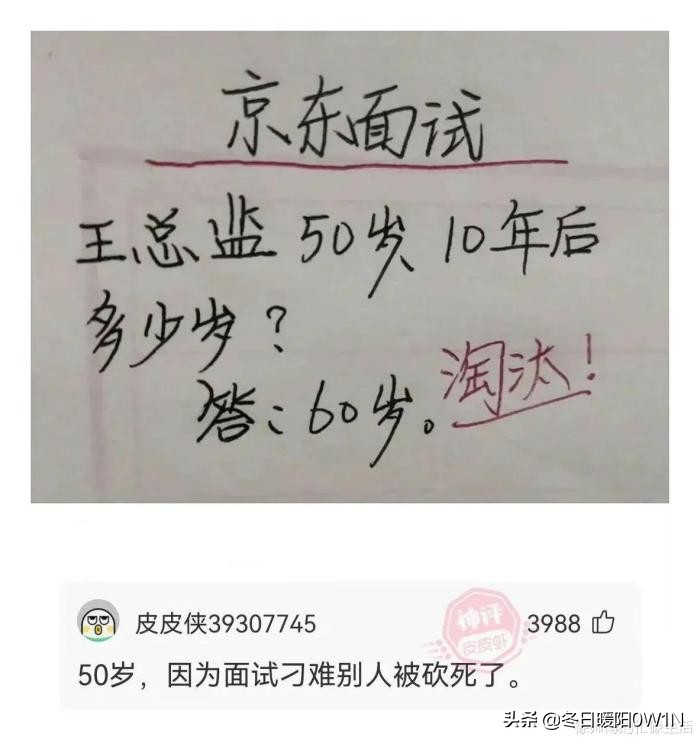 京东面试
王总监50岁 10年后
多少岁?
答:60岁。
淘汰!
皮皮侠39307745
神评
皮皮虾
3988
50岁，因为面试刁难别人被砍死了。
头条 @冬日暖阳0W1N